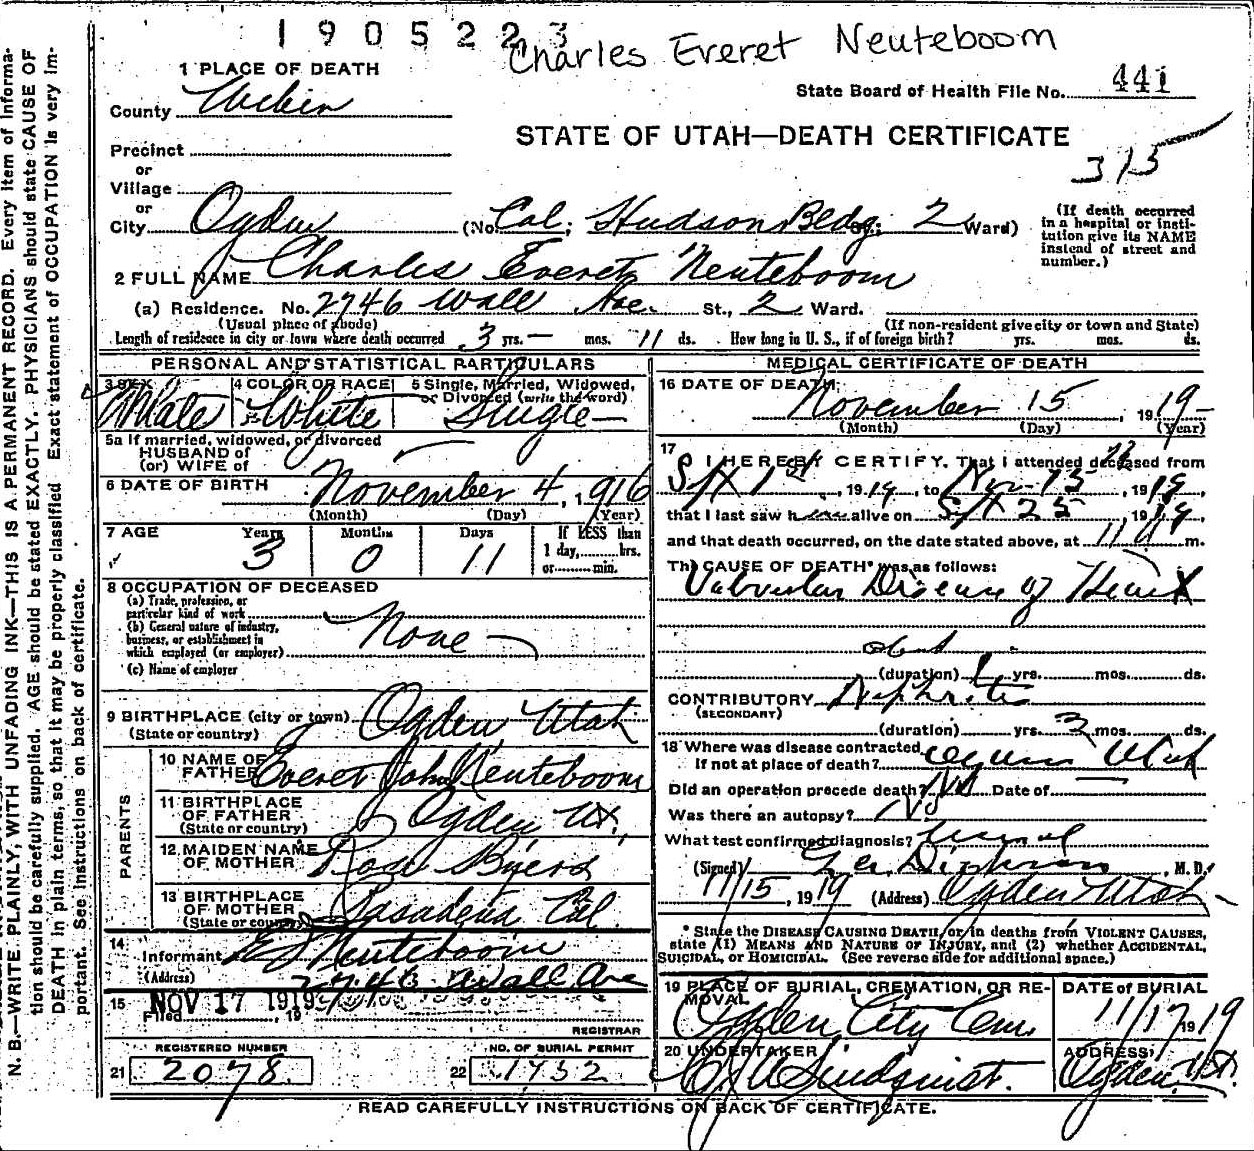 1905223
Charles Everet Neuteboom
1 PLACE OF DEATH
County Weber
State Board of Health File No. 441
STATE OF UTAH—DEATH CERTIFICATE
315
Precinct
or
Village
or
City Ogden (No. Col. Hudson Bldg. 2 Ward)
(If death occurred in a hospital or institution give its NAME instead of street and number.)
2 FULL NAME Charles Everet Neuteboom
(a) Residence. No. 2746 Wall Ave. St., 2 Ward.
(Usual place of abode) (If non-resident give city or town and State)
Length of residence in city or town where death occurred 3 yrs. — mos. 11 ds. How long in U. S., if of foreign birth? yrs. mos. ds.
PERSONAL AND STATISTICAL PARTICULARS
3 SEX Male
4 COLOR OR RACE White
5 Single, Married, Widowed, or Divorced (write the word) Single
5a If married, widowed, or divorced
HUSBAND of
(or) WIFE of
6 DATE OF BIRTH November 4, 1916
(Month) (Day) (Year)
7 AGE Years 3 Months 0 Days 11 If LESS than
1 day, hrs.
or min.
8 OCCUPATION OF DECEASED
(a) Trade, profession, or
particular kind of work
(b) General nature of industry,
business, or establishment in
which employed (or employer) None
(c) Name of employer
9 BIRTHPLACE (city or town) Ogden Utah
(State or country)
PARENTS
10 NAME OF FATHER Everet John Neuteboom
11 BIRTHPLACE OF FATHER Ogden Ut.
(State or country)
12 MAIDEN NAME OF MOTHER Rose Byers
13 BIRTHPLACE OF MOTHER Pasadena Cal.
(State or country)
14
Informant E J Neuteboom
(Address) 2746 Wall Ave
15 NOV 17 1919
Filed , 19
REGISTRAR
REGISTERED NUMBER
21 2078
NO. OF BURIAL PERMIT
22 1752
MEDICAL CERTIFICATE OF DEATH
16 DATE OF DEATH
November 15, 1919
(Month) (Day) (Year)
17
I HEREBY CERTIFY, That I attended deceased from
1st, 1919, to Nov 15, 1919,
that I last saw h alive on 25 1919,
and that death occurred, on the date stated above, at 11 m.
The CAUSE OF DEATH* was as follows:
Valvular Disease of Heart
about
(duration) 1 yrs. mos. ds.
CONTRIBUTORY Nephritis
(SECONDARY)
(duration) yrs. 3 mos. ds.
18 Where was disease contracted
If not at place of death? Ogden Utah
Did an operation precede death? No Date of
Was there an autopsy? No
What test confirmed diagnosis? usual
(Signed) , M. D.
11/15, 1919 (Address) Ogden Utah
* State the DISEASE CAUSING DEATH, or in deaths from VIOLENT CAUSES,
state (1) MEANS AND NATURE OF INJURY, and (2) whether ACCIDENTAL,
SUICIDAL, or HOMICIDAL. (See reverse side for additional space.)
19 PLACE OF BURIAL, CREMATION, OR REMOVAL
Ogden City Cem.
DATE of BURIAL
11/17 1919
20 UNDERTAKER
Lindquist.
ADDRESS
Ogden, Ut.
READ CAREFULLY INSTRUCTIONS ON BACK OF CERTIFICATE.
N. B.—WRITE PLAINLY, WITH UNFADING INK—THIS IS A PERMANENT RECORD. Every item of information
should be carefully supplied. AGE should be stated EXACTLY. PHYSICIANS should state CAUSE OF
DEATH in plain terms, so that it may be properly classified. Exact statement of OCCUPATION is very important.
See instructions on back of certificate.